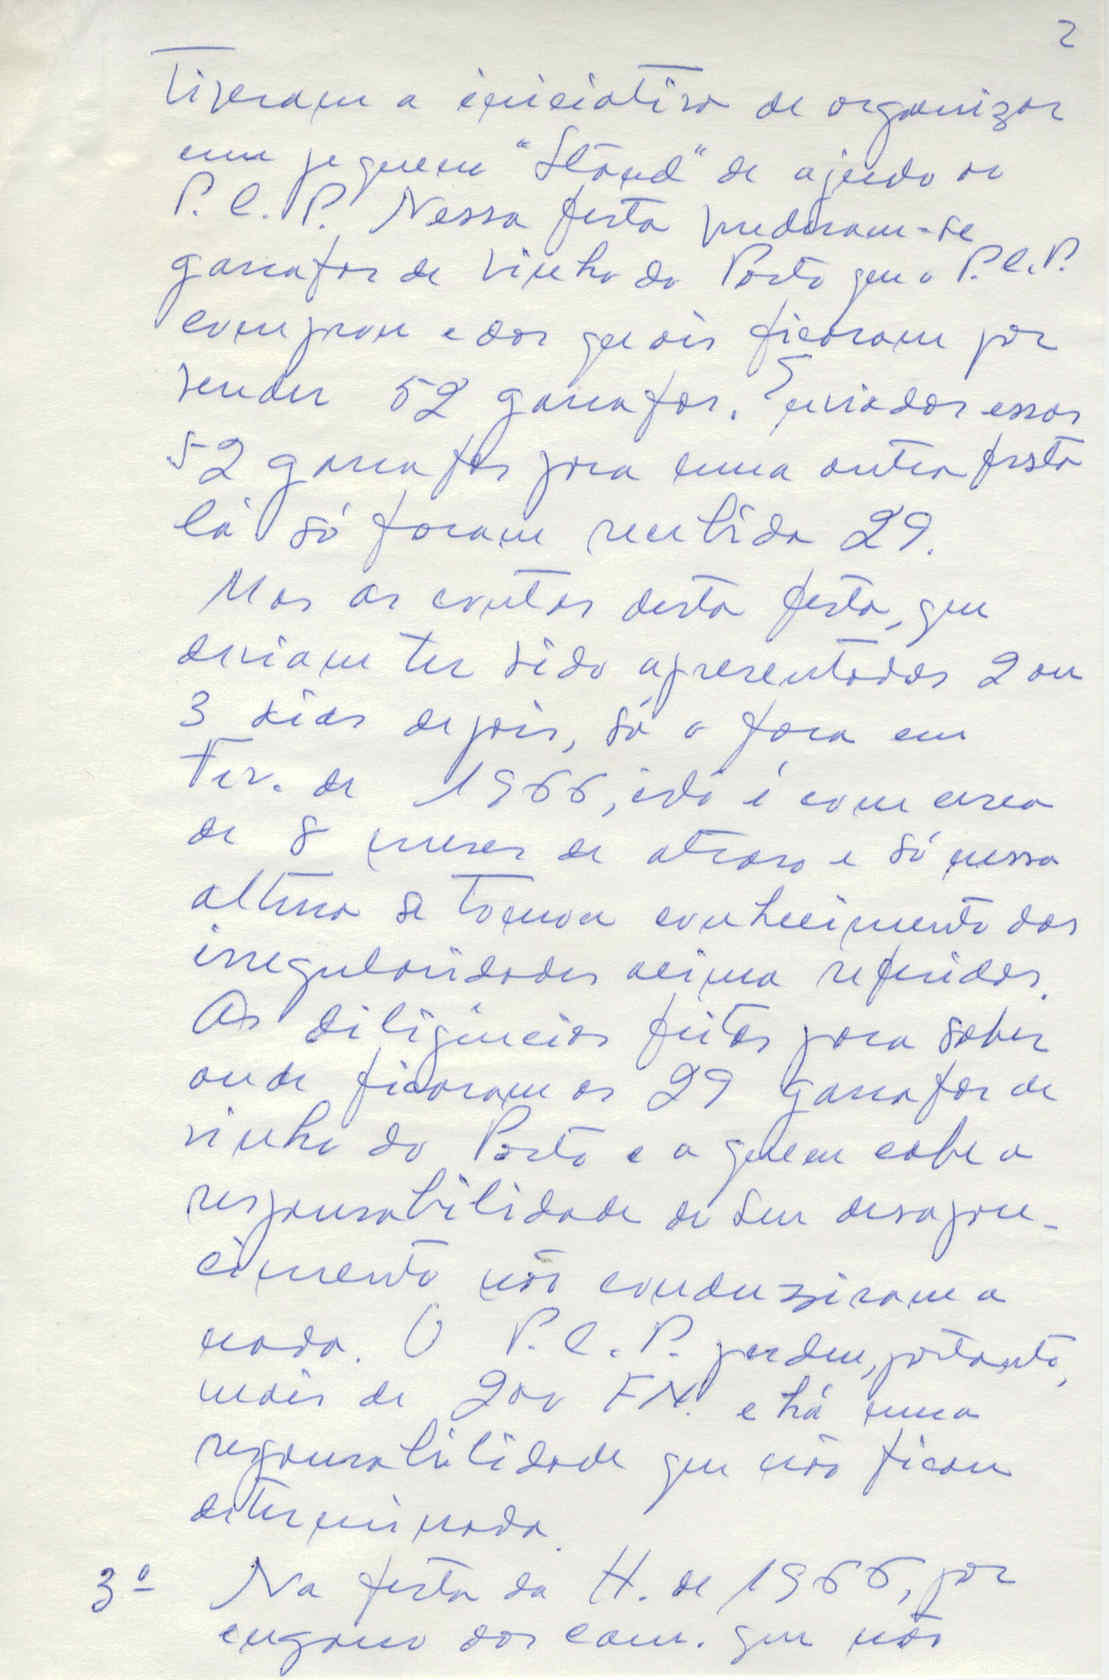 2
Tiveram a iniciativa de organizar
um pequeno "Stand" de ajuda ao
P.C.P. Nessa festa venderam-se
garrafas de vinho do Porto que o P.C.P.
comprou e das quais ficaram por
vender 52 garrafas. Enviadas essas
52 garrafas para uma outra festa
lá só foram recebida 29.
Mas as contas desta festa, que
deviam ter sido apresentadas 2 ou
3 dias depois, só o foram em
Fev. de 1966, isto é com cerca
de 8 meses de atraso e só nessa
altura se tomou conhecimento das
irregularidades acima referidas.
As diligências feitas para saber
onde ficaram as 29 garrafas de
vinho do Porto e a quem cabe a
responsabilidade do seu desapare-
cimento não conduziram a
nada. O P.C.P. perdeu, portanto,
mais de 200 FN. e há uma
responsabilidade que não ficou
determinada.
3º Na festa da H. de 1966, por
engano dos cam. que nos